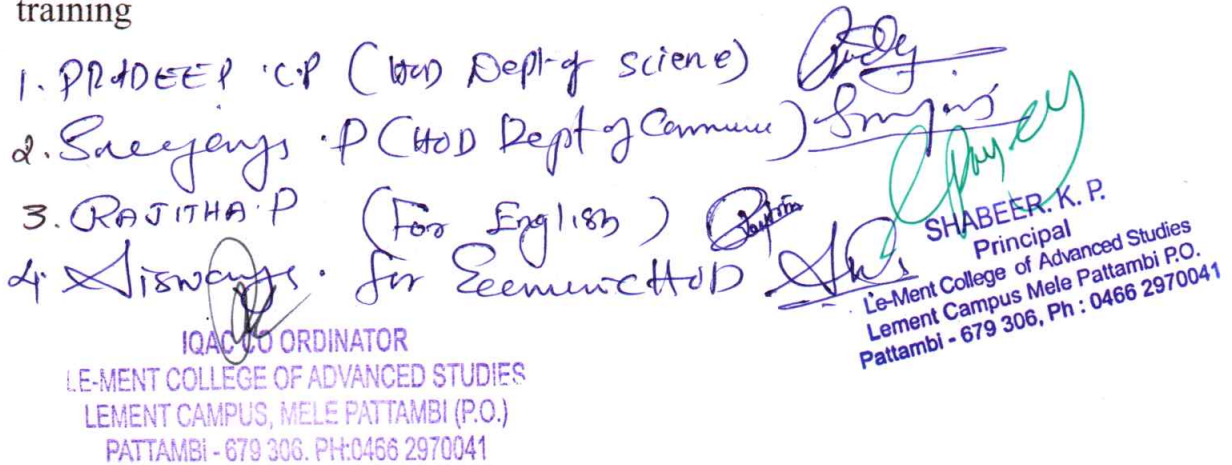 training
1. PRADEEP .C.P (HOD Dept of science)
2. Sreejanya .P (HOD Dept of Commerce)
3. RAJITHA.P (For English)
4 Aiswarya . for Economic HOD
SHABEER. K. P.
Principal
Le-Ment College of Advanced Studies
Lement Campus Mele Pattambi P.O.
Pattambi - 679 306, Ph : 0466 2970041
IQAC CO ORDINATOR
LE-MENT COLLEGE OF ADVANCED STUDIES
LEMENT CAMPUS, MELE PATTAMBI (P.O.)
PATTAMBI - 679 306. PH:0466 2970041